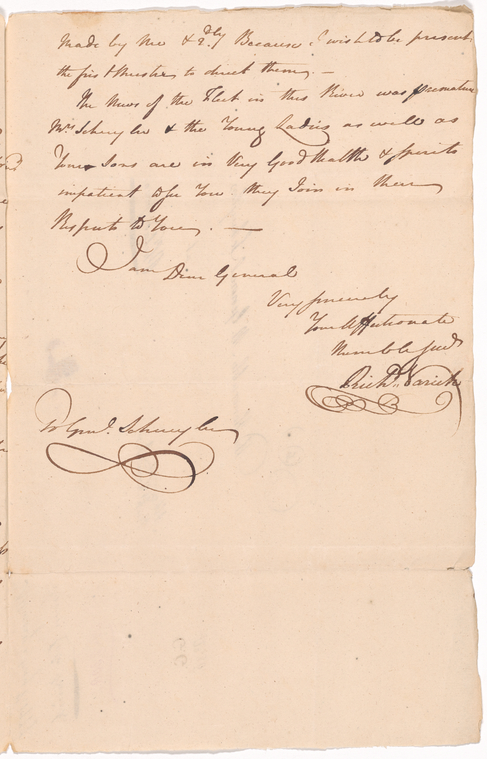 Made by me & 2dly Because I wish to be present
the first Muster to direct them. —
The News of the Fleet in this River was premature
Mrs Schuyler & the Young Ladies as well as
Your Sons are in Very Good Health & spirits
impatient to see You they Join in their
Respects to You. —
I am Dear General
Very sincerely
Your Affectionate
Humble Servt
Richd. Varick
To Genl. Schuyler